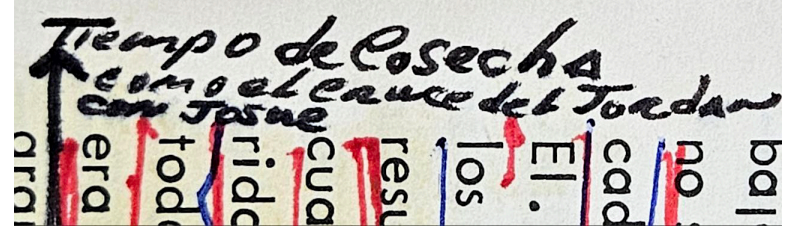 Tiempo de Cosecha
como el cauce del Jordan
con Josue
era
tod
rid
cua
resu
los
El.
cad
no